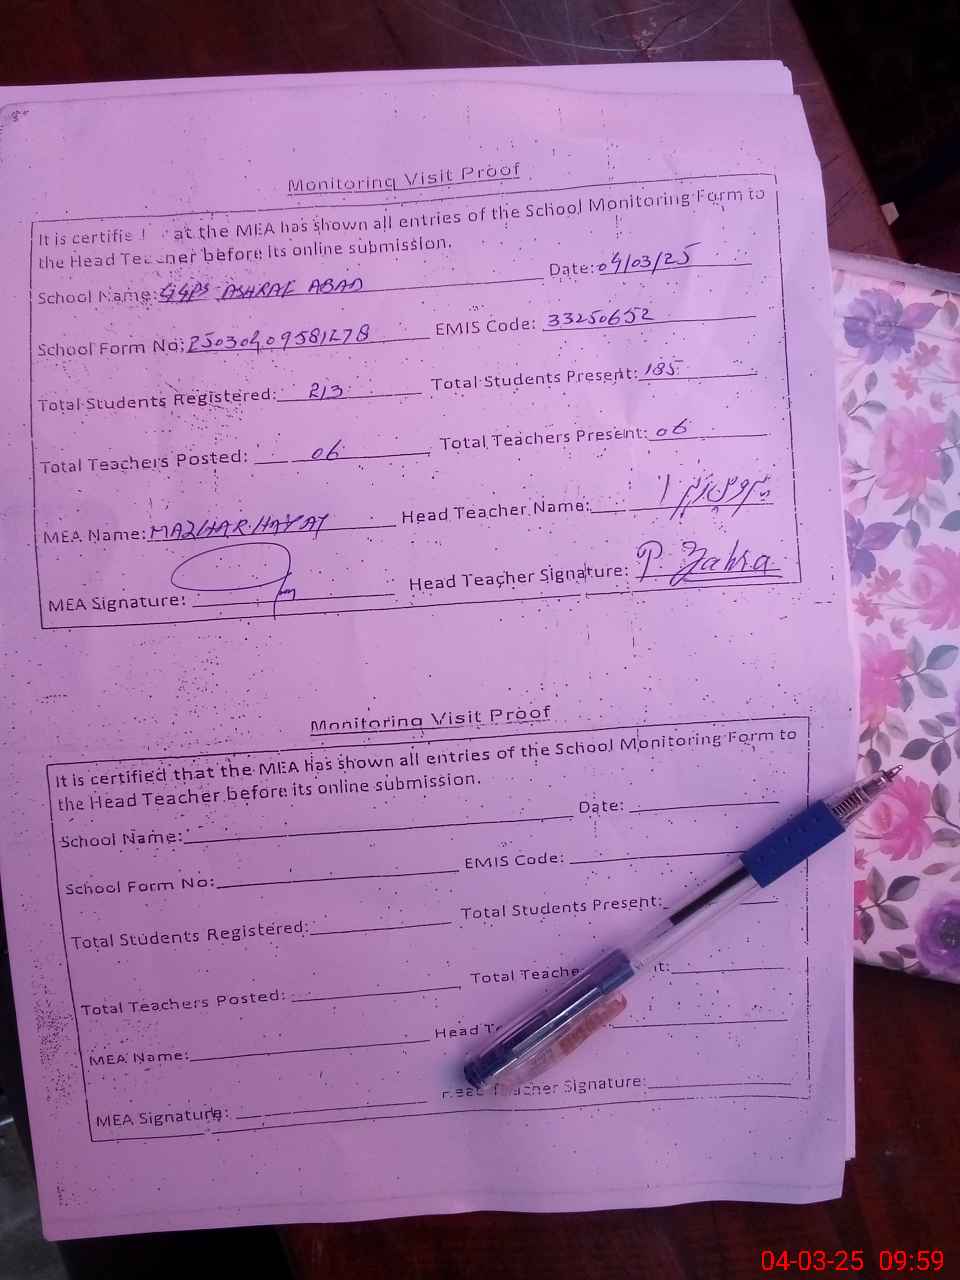 Monitoring Visit Proof
It is certified that the MEA has shown all entries of the School Monitoring Form to
the Head Teacher before its online submission.
School Name: GGPS ASHRAF ABAD Date: 04/03/25
School Form No: 25030409581278 EMIS Code: 33250652
Total Students Registered: 213 Total Students Present: 185
Total Teachers Posted: 06 Total Teachers Present: 06
MEA Name: MAZHAR HAYAT Head Teacher Name:
MEA Signature: Head Teacher Signature: P. Zahra
Monitoring Visit Proof
It is certified that the MEA has shown all entries of the School Monitoring Form to
the Head Teacher before its online submission.
School Name: Date:
School Form No: EMIS Code:
Total Students Registered: Total Students Present:
Total Teachers Posted: Total
MEA Name: Head
MEA Signature: Head Teacher Signature:
04-03-25 09:59